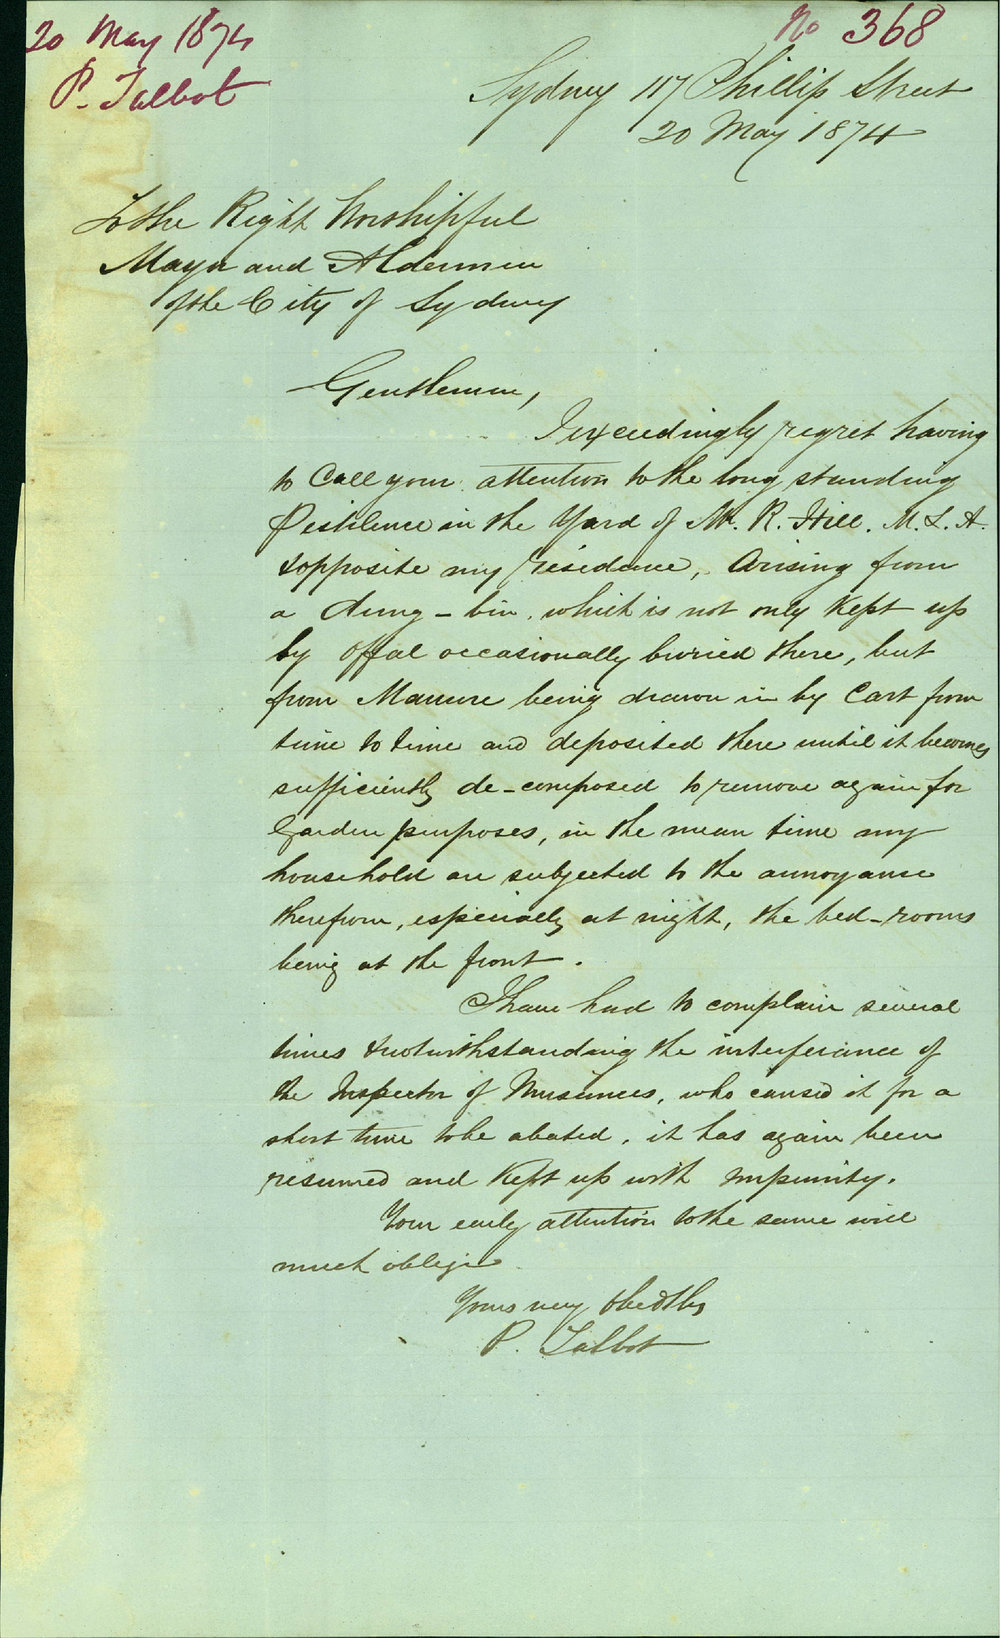 20 May 1874
P. Talbot
No 368
Sydney 117 Phillip Street
20 May 1874
To the Right Worshipful
Mayor and Aldermen
of the City of Sydney
Gentlemen,
I exceedingly regret having
to Call your attention to the long standing
Pestilence in the Yard of Mr. R. Hill. M.L.A.
& opposite my residence, Arising from
a dung-bin, which is not only Kept up
by offal occasionally buried there, but
from Manure being drawn in by Cart from
time to time and deposited there until it becomes
sufficiently de-composed to remove again for
Garden purposes, in the mean time my
household are subjected to the annoyance
therefrom, especially at night, the bed-rooms
being at the front.
I have had to complain several
times & notwithstanding the interferance of
the Inspector of Nusiances, who caused it for a
short time to be abated, it has again been
resumed and Kept up with impunity.
Your early attention to the same will
much oblige
Yours very Obedtly
P. Talbot